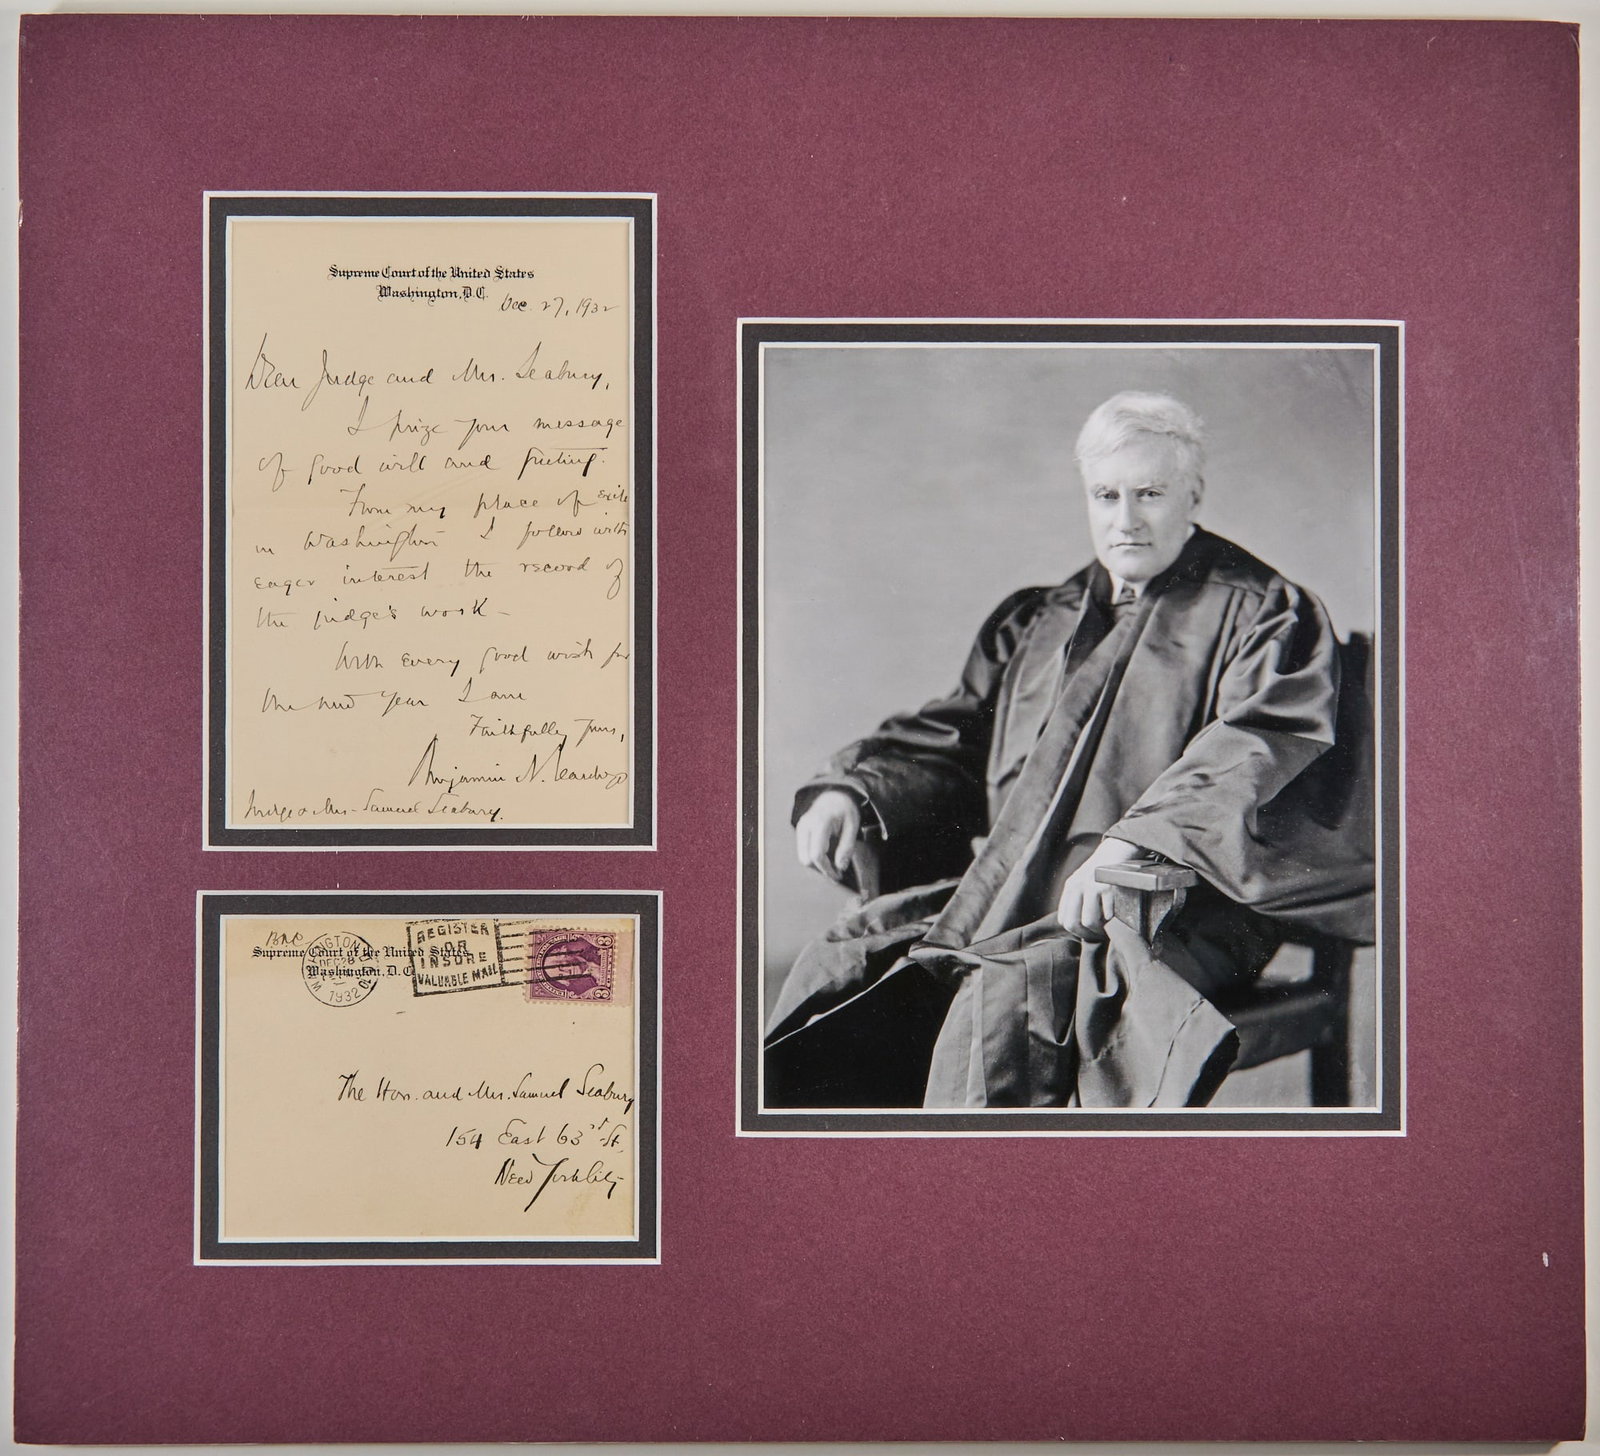 Supreme Court of the United States
Washington, D.C.
Dec. 27, 1932
Dear Judge and Mrs. Seabury,
I prize your message
of good will and greeting.
From my place of exile
in Washington I follow with
eager interest the record of
the judge's work -
With every good wish for
the new year I am
Faithfully yours,
Benjamin N. Cardozo
Judge & Mrs. Samuel Seabury.
BNC
Supreme Court of the United States
Washington, D.C.
WASHINGTON
DEC 28
1932
REGISTER
OR
INSURE
VALUABLE MAIL
3 3
The Hon. and Mrs. Samuel Seabury
154 East 63rd St.
New York City